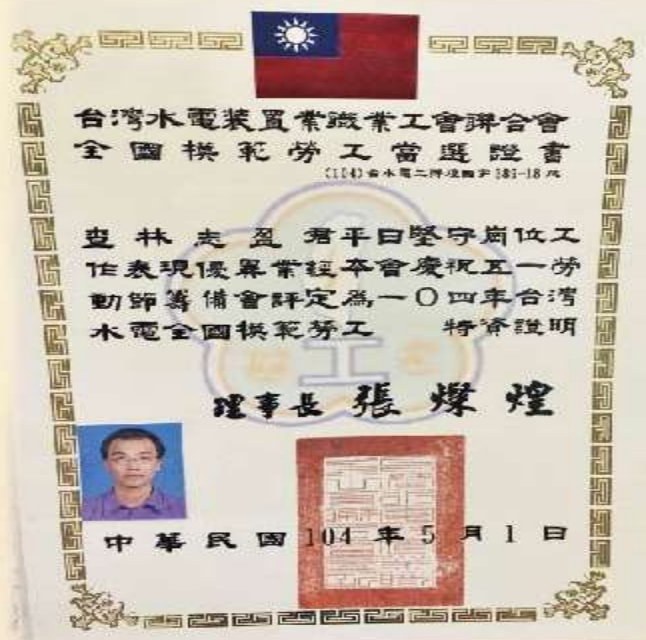 台灣水電裝置業職業工會聯合會
全國模範勞工當選證書
(104)台水電二輝模國字181-18號
查林志盈君平日堅守崗位工
作表現優異業經本會慶祝五一勞
動節籌備會評定為一〇四年台灣
水電全國模範勞工 特資證明
理事長 張燦煌
中華民國104年5月1日